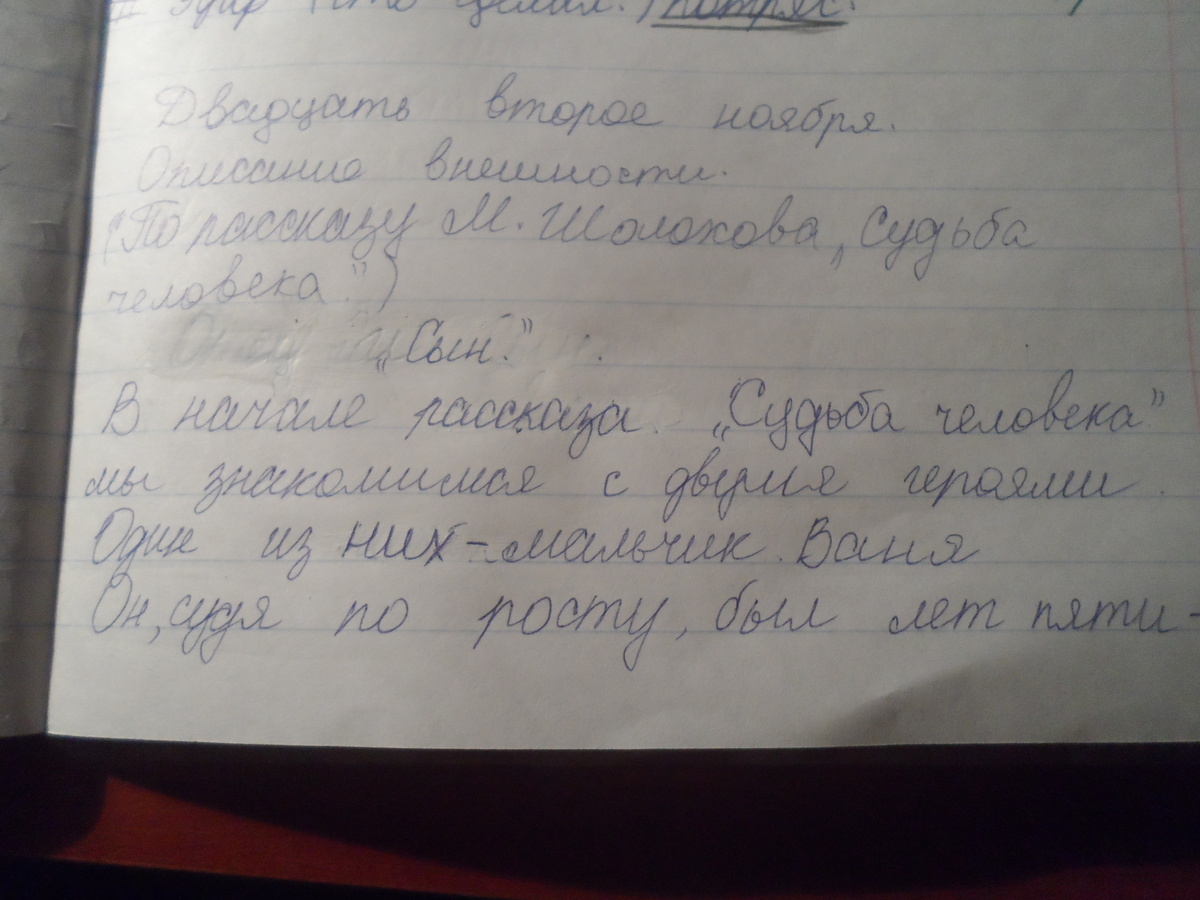 Двадцать второе ноября.
Описание внешности.
(По рассказу М. Шолохова „Судьба
человека".)
„Сын."
В начале рассказа „Судьба человека"
мы знакомимся с двумя героями.
Один из них - мальчик Ваня
Он, судя по росту, был лет пяти-